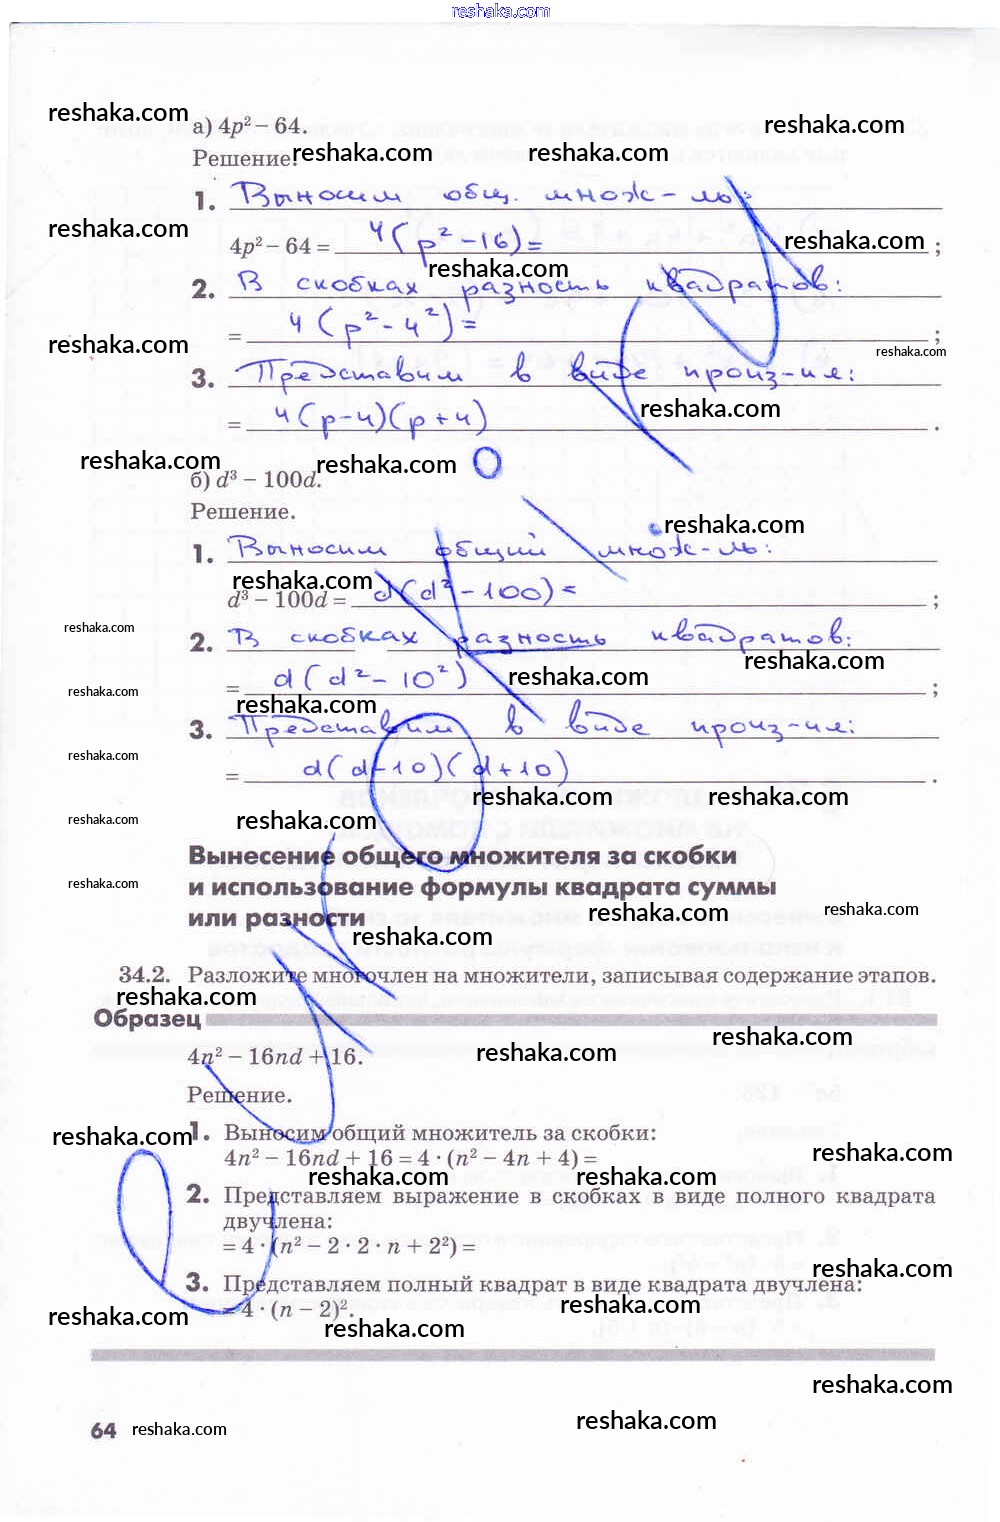 reshaka.com
reshaka.com
а) 4p² – 64.
reshaka.com
Решение.
reshaka.com
reshaka.com
1. Выносим общ. множ-ль:
reshaka.com
4p² – 64 = 4(p² – 16) =
reshaka.com
;
reshaka.com
2. В скобках разность квадратов:
= 4(p² – 4²) =
;
reshaka.com
reshaka.com
3. Представим в виде произ-ия:
reshaka.com
= 4(p–4)(p+4)
.
reshaka.com
reshaka.com
б) d³ – 100d.
Решение.
reshaka.com
1. Выносим общий множ-ль:
reshaka.com
d³ – 100d = d(d² – 100) =
;
reshaka.com
2. В скобках разность квадратов:
reshaka.com
= d(d² – 10²)
reshaka.com
;
reshaka.com
reshaka.com
3. Представим в виде произ-ия:
reshaka.com
= d(d–10)(d+10)
.
reshaka.com
reshaka.com
reshaka.com
reshaka.com
Вынесение общего множителя за скобки
и использование формулы квадрата суммы
или разности
reshaka.com
reshaka.com
reshaka.com
reshaka.com
34.2. Разложите многочлен на множители, записывая содержание этапов.
reshaka.com
Образец
reshaka.com
4n² – 16nd + 16.
reshaka.com
Решение.
reshaka.com
1. Выносим общий множитель за скобки:
4n² – 16nd + 16 = 4 · (n² – 4n + 4) =
reshaka.com
reshaka.com
reshaka.com
2. Представляем выражение в скобках в виде полного квадрата
двучлена:
= 4 · (n² – 2 · 2 · n + 2²) =
reshaka.com
3. Представляем полный квадрат в виде квадрата двучлена:
= 4 · (n – 2)².
reshaka.com
reshaka.com
reshaka.com
reshaka.com
64
reshaka.com
reshaka.com